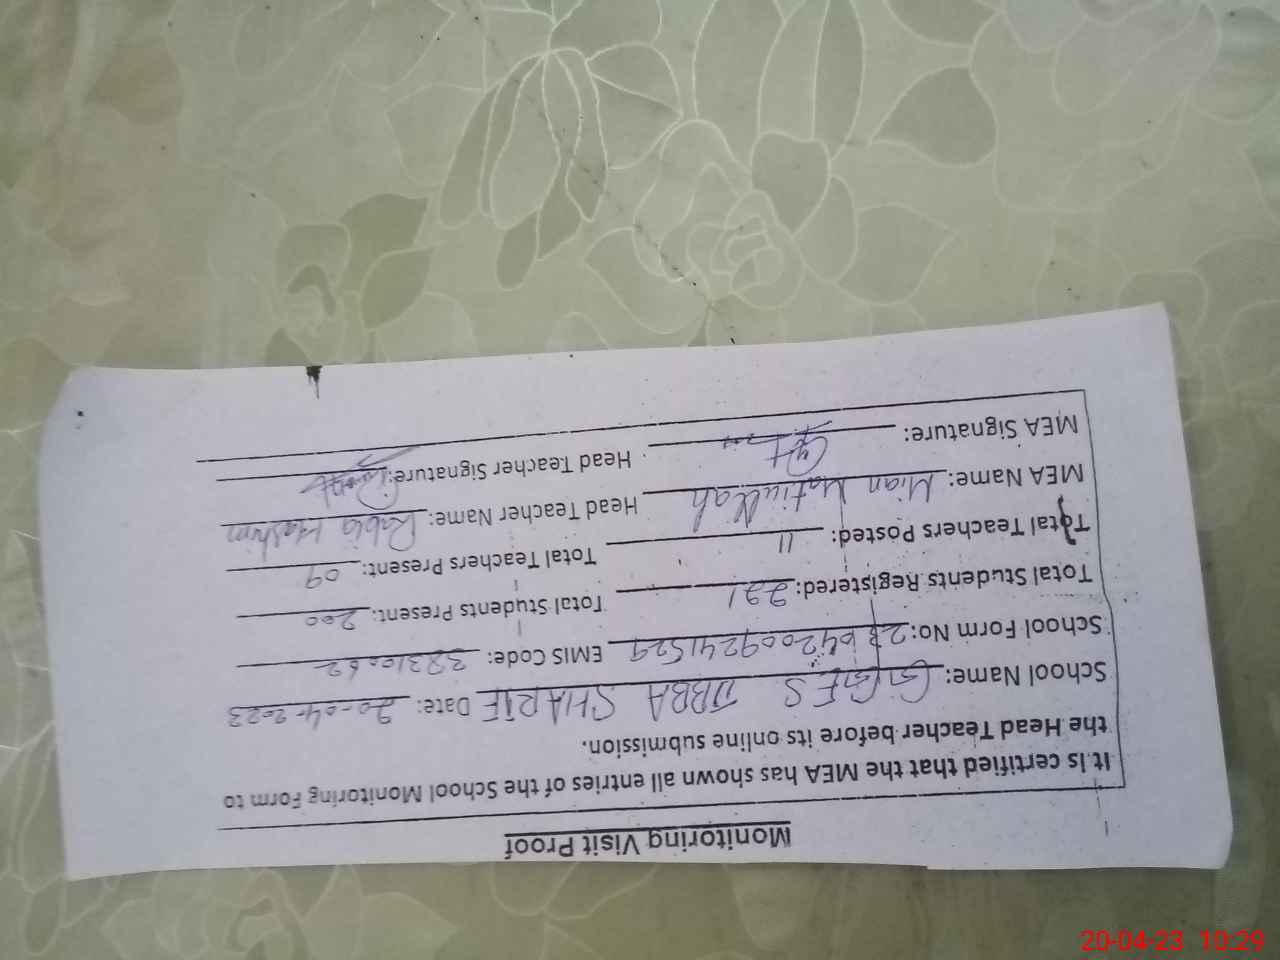 Monitoring Visit Proof
It is certified that the MEA has shown all entries of the School Monitoring Form to
the Head Teacher before its online submission.
School Name: GGES JBBA SHARIF Date: 20-04-2023
School Form No: 23042009241529 EMIS Code: 38310062
Total Students Registered: 221 Total Students Present: 200
Total Teachers Posted: 11 Total Teachers Present: 09
MEA Name: Mian Matiullah Head Teacher Name: Rabia Hashim
MEA Signature: Head Teacher Signature:
20-04-23 10:29